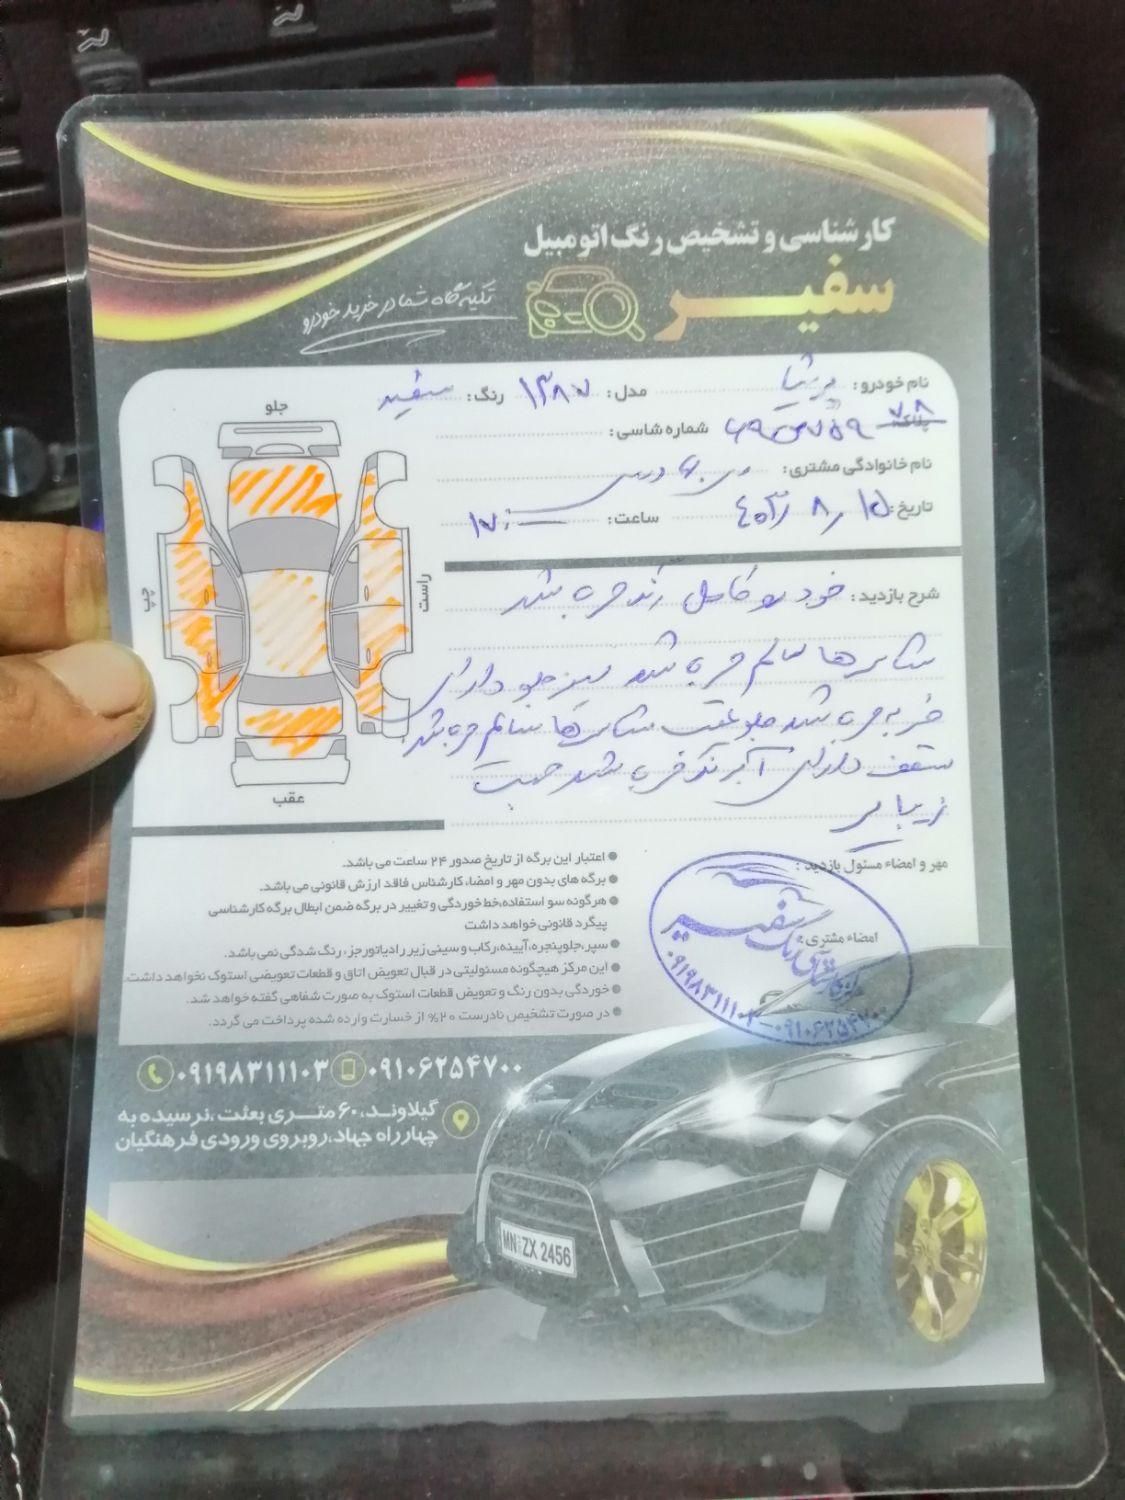 کارشناسی و تشخیص رنگ اتومبیل
سفیر
تکیه گاه شما در خرید خودرو
نام خودرو: پرشیا مدل: ۱۳۸۷ رنگ: سفید
پلاک: ۷۸
شماره شاسی:
نام خانوادگی مشتری:
تاریخ: ۱۵ / ۸ / ۴۰۳ ساعت: ۱۷:
شرح بازدید: خودرو کامل رنگ خورده می باشد
شاسی ها سالم می باشد سینی جلو دارای
ضربه می باشد جلو عقب شاسی ها سالم می باشد
سقف دارای آبرنگ می باشد جهت
زیبایی
جلو
چپ
راست
عقب
مهر و امضاء مسئول بازدید:
امضاء مشتری:
سفیر
۰۹۱۹۸۳۱۱۱۰۳-۰۹۱۰۶۲۵۴۷۰۰
● اعتبار این برگه از تاریخ صدور ۲۴ ساعت می باشد.
● برگه های بدون مهر و امضاء کارشناس فاقد ارزش قانونی می باشد.
● هرگونه سو استفاده،خط خوردگی و تغییر در برگه ضمن ابطال برگه کارشناسی
پیگرد قانونی خواهد داشت
● سپر،جلوپنجره،آیینه،رکاب و سینی زیر رادیاتور جز، رنگ شدگی نمی باشد.
● این مرکز هیچگونه مسئولیتی در قبال تعویض اتاق و قطعات تعویضی استوک نخواهد داشت.
● خوردگی بدون رنگ و تعویض قطعات استوک به صورت شفاهی گفته خواهد شد.
● در صورت تشخیص نادرست ۲۰% از خسارت وارده شده پرداخت می گردد.
۰۹۱۰۶۲۵۴۷۰۰ ۰۹۱۹۸۳۱۱۱۰۳
گیلاوند، ۶۰ متری بعثت، نرسیده به
چهارراه جهاد،روبروی ورودی فرهنگیان
MN ZX 2456